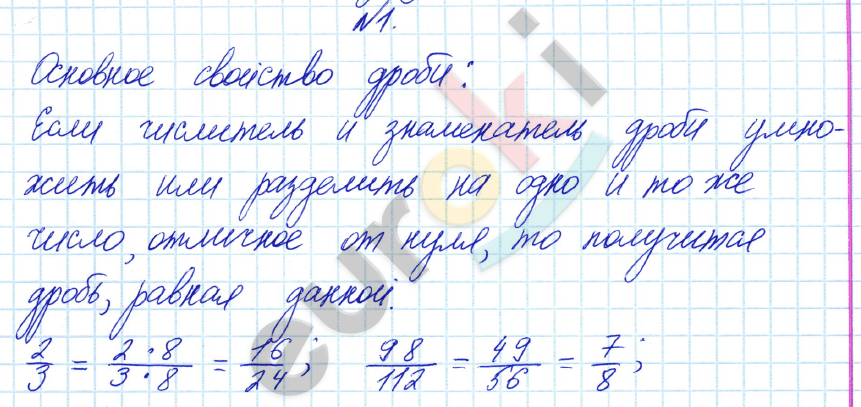 №1.
Основное свойство дроби:
Если числитель и знаменатель дроби умно-
жить или разделить на одно и то же
число, отличное от нуля, то получится
дробь, равная данной.
2/3 = 2·8/3·8 = 16/24; 98/112 = 49/56 = 7/8;
euroki